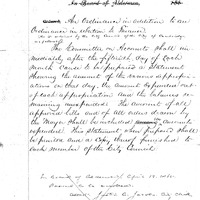 In Board of Aldermen
An Ordinance in addition to an
Ordinance in relation to Finance.
The Committee on Accounts shall im-
mediately after the fifteenth day of each
month cause to be prepared a statement
showing the amount of the various appropri-
ations on that day, the amount expended out
of each appropriation and the balances re-
maining unexpended. The amount of all
approved bills and of all orders drawn by
the Mayor shall be included amounts
expended. This statement when prepared shall
be printed and a copy thereof transmitted to
each member of the City Council.
In Board of Aldermen, April 18,
Passed to be
Attest, City Clerk